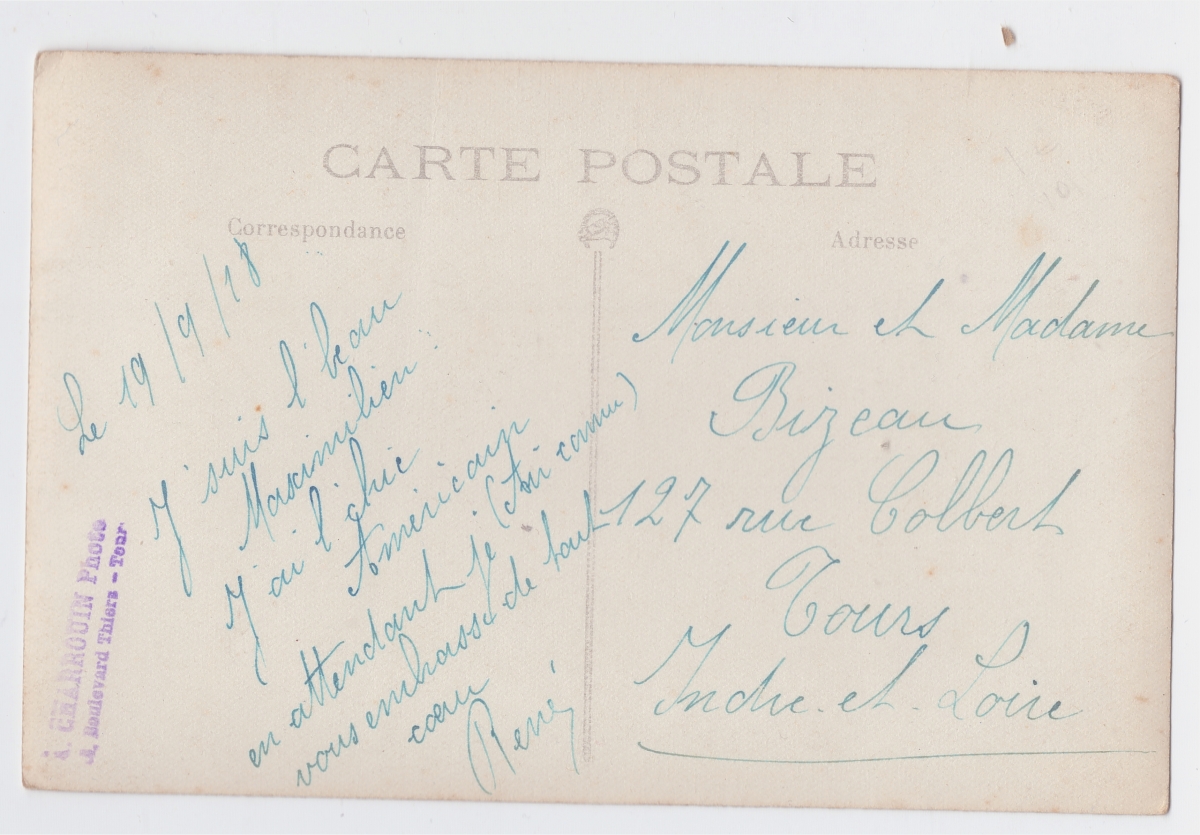 CARTE POSTALE
Correspondance
Adresse
Le 19/9/18
J'suis l'beau
Maximilien :
J'ai l'chic
Américain
(Air connu)
en attendant je
vous embrasse de tout
cœur
René
Monsieur et Madame
Bizeau
127 rue Colbert
Tours
Indre-et-Loire
A. CHARROUIN Photo
Boulevard Thiers - Tour